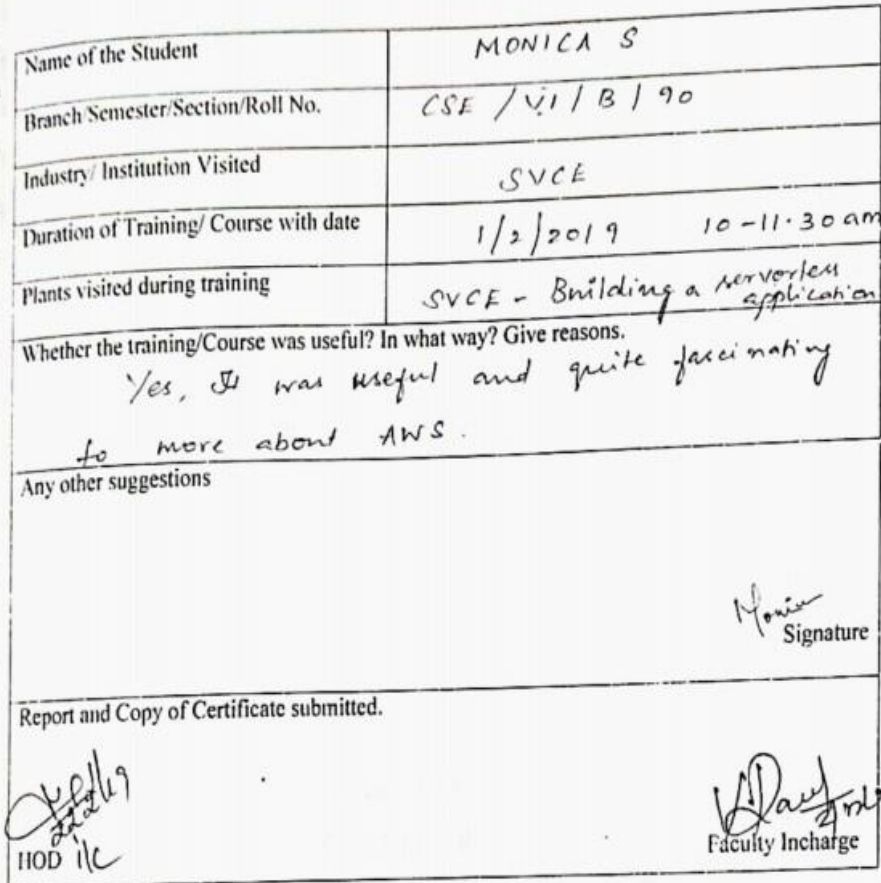 Name of the Student MONICA S
Branch/Semester/Section/Roll No. CSE / VI / B / 90
Industry/ Institution Visited SVCE
Duration of Training/ Course with date 1/2/2019 10-11.30 am
Plants visited during training SVCE - Building a serverless
application
Whether the training/Course was useful? In what way? Give reasons.
Yes, It was useful and quite fascinating
to more about AWS.
Any other suggestions
Monica
Signature
Report and Copy of Certificate submitted.
HOD i/c
Faculty Incharge